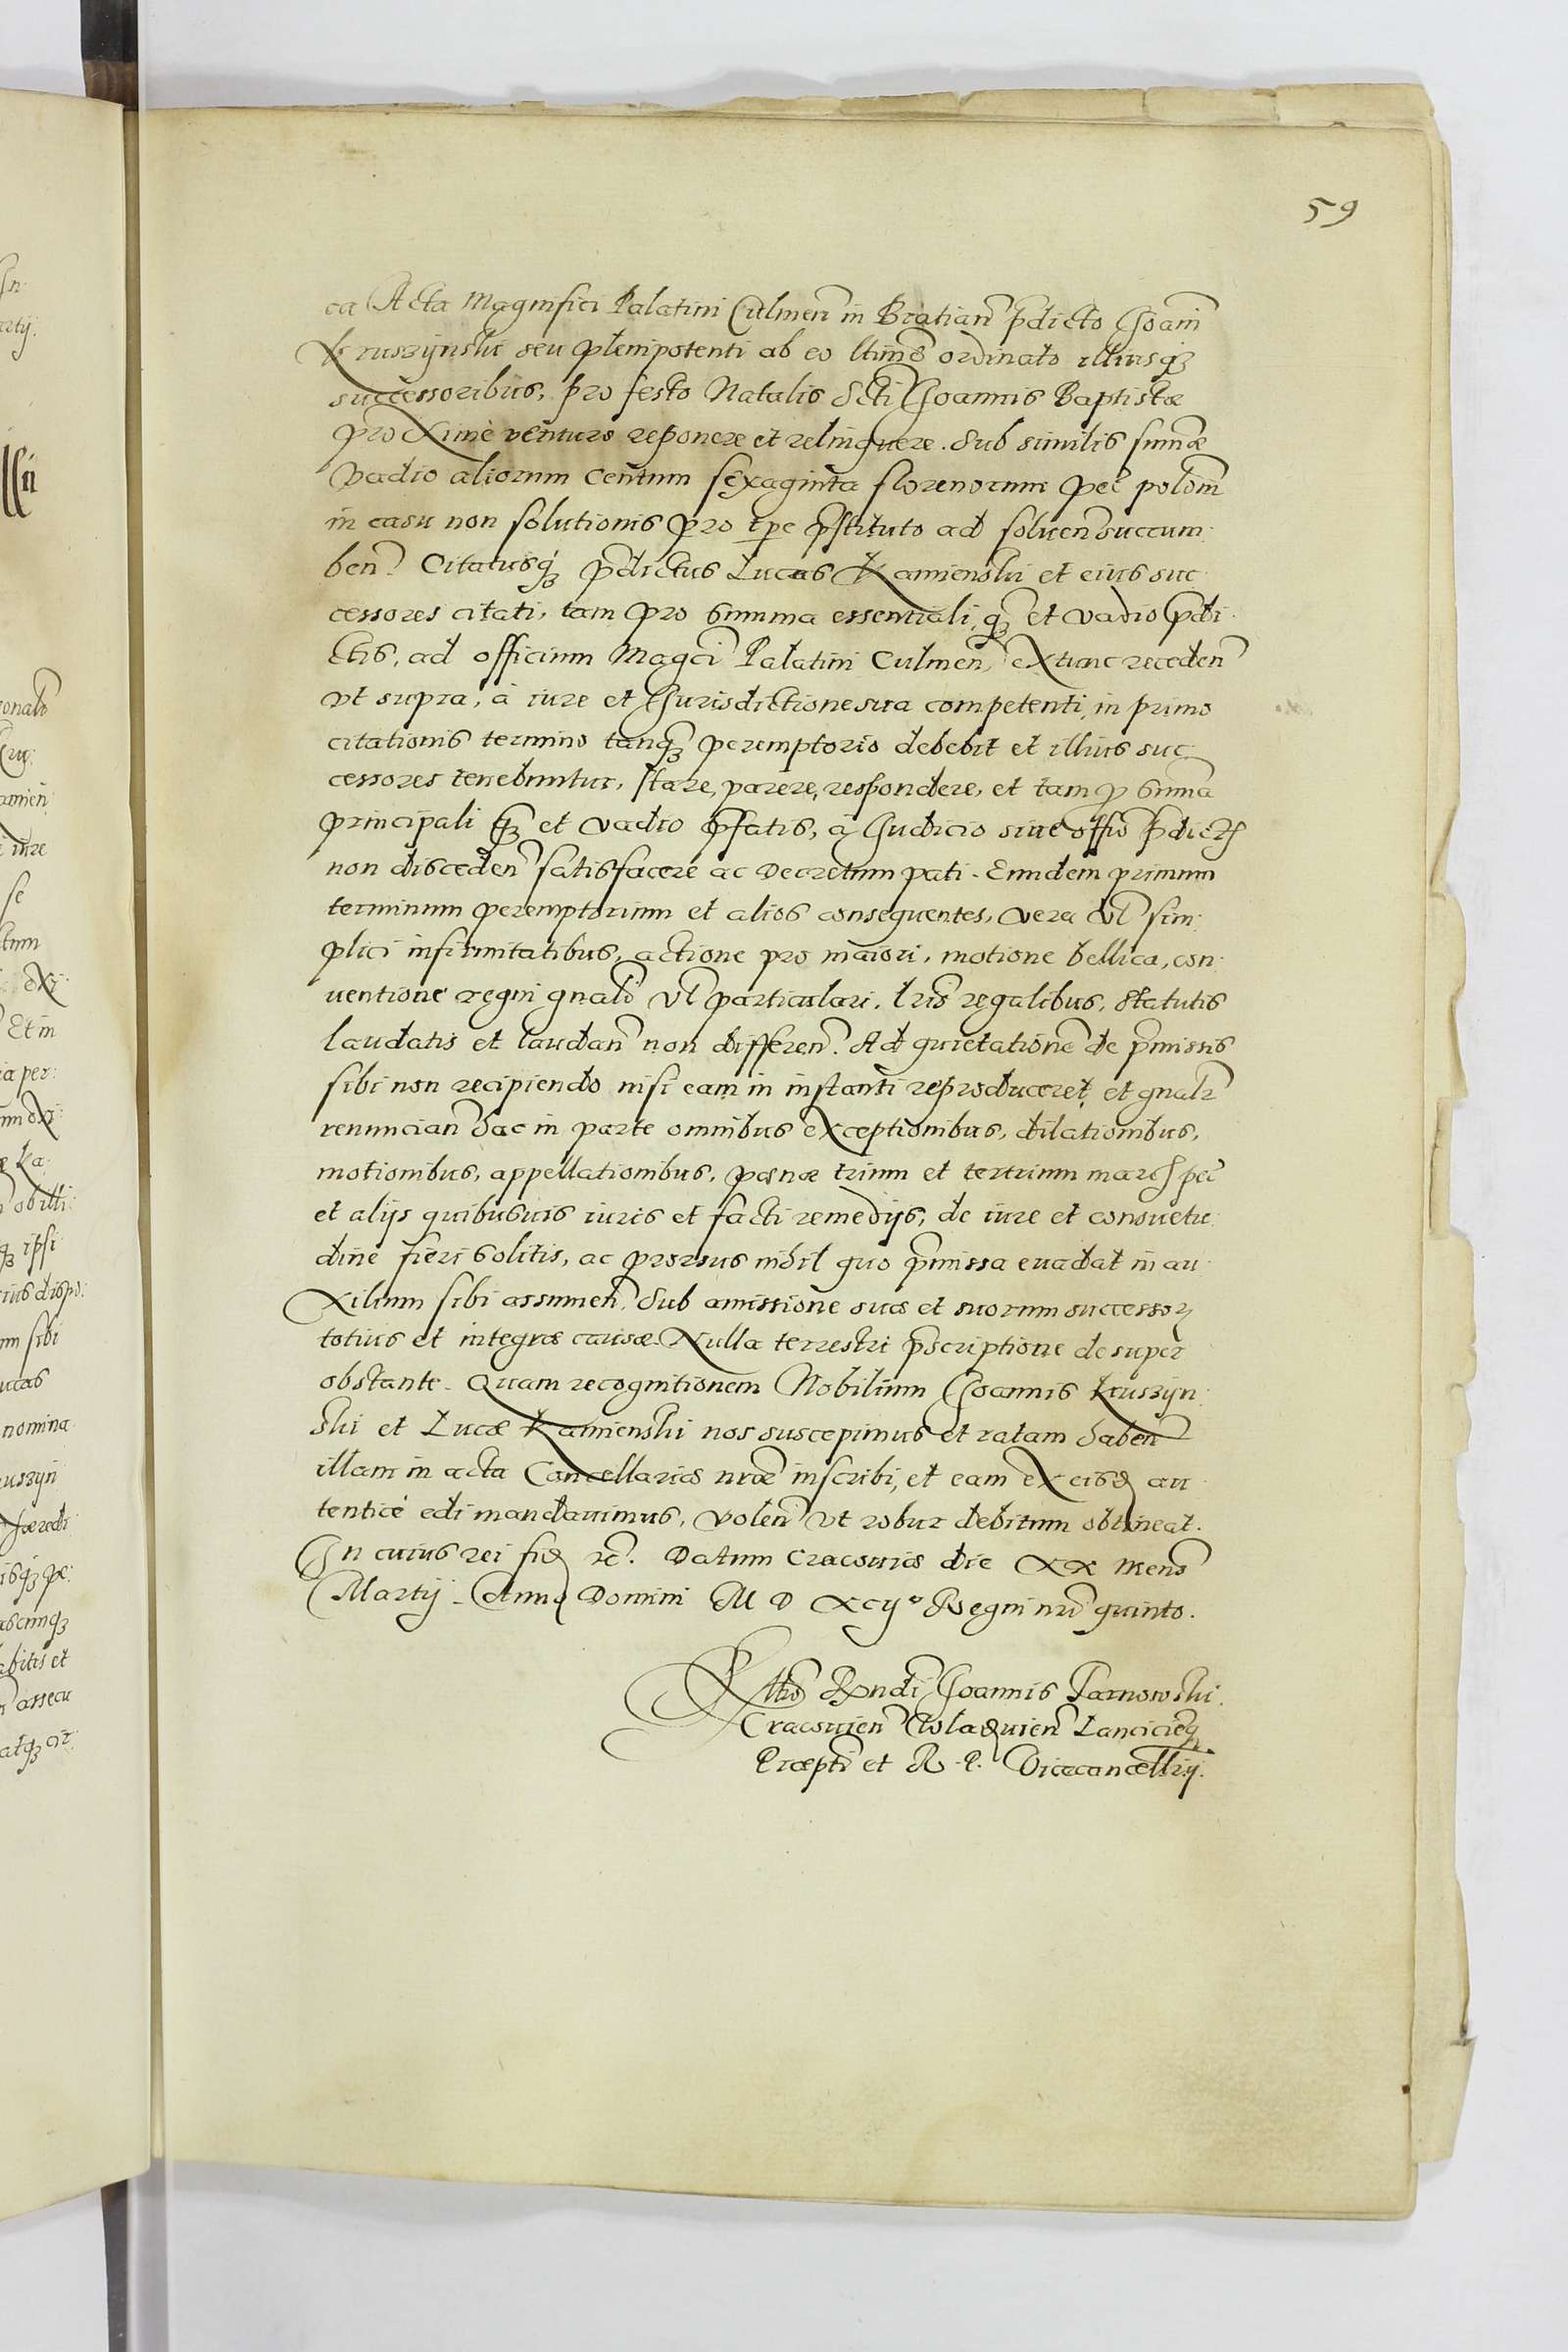 59
ca Acta Magnifici Palatini Culmen in Bratian pdicto Joani
Kruszynski seu plenipotenti ab eo ltime ordinato illiusq3
successoribus, pro festo Natalis Scti Joannis Baptistæ
proxime venturo reponere et relinquere. Sub similis summæ
vadio aliorum centum sexaginta florenorum pec polon
in casu non solutionis pro tpe pstituto ad soluen succum
ben. Citatusq3 pdictus Lucas Kamienski et eius suc
cessores citati, tam pro summa essentiali, q3 et vadio pdi
ctis, ad officium Magci Palatini Culmen, extunc receden
vt supra, à iure et Jurisdictione sua competenti, in primo
citationis termino tanq3 peremptorio debebit et illius suc
cessores tenebuntur, stare, parere, respondere, et tam p summa
principali q3 et vadio pfatis, à Judicio siue offo pdict
non disceden satisfacere ac Decretum pati. Eundem primum
terminum peremptorium et alios consequentes, vera vl sim
plici infirmitatibus, actione pro maiori, motione bellica, con
uentione regni gnali vl particulari, lris regalibus, statutis
laudatis et laudan non differen. Ad quietatione de pmissis
sibi non recipiendo nisi eam in instanti reproduceret, et gnalr
renuncian hac in parte omnibus exceptionibus, dilationibus,
motionibus, appellationibus, pœnæ trium et tertium marc pec
et alijs quibusuis iuris et facti remedijs, de iure et consuetu
dine fieri solitis, ac prorsus nihil quo pmissa euadat in au
xilium sibi assumen. Sub amissione suæ et suorum successor
totius et integræ causæ. Nulla terrestri pscriptione desuper
obstante. Quam recognitionem Nobilium Joannis Kruszyn
ski et Lucæ Kamienski nos suscepimus et ratam haben
illam in acta Cancellariæ nræ inscribi, et eam ex eisd au
tenticè edi mandauimus, volen vt robur debitum obtineat.
In cuius rei fid rc. Datum Cracouiæ die XX Mens
Martij. Anno Domini M D XCIJo Regni nri quinto.
Rltio Rndi Joannis Tarnowski.
Cracouien Wladvien Lancicien
Præpti et R. P. Vicecancellrij.